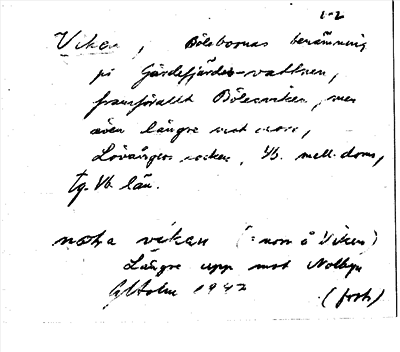 1-2
Viken, Bölesbornas benämning
på Gärdefjärdes-vattnen,
framförallt Böleviken, men
även längre mot norr,
Lövångers socken, Vb. mell. doms,
Vb. län.
norra viken (= norr å Viken)
Längre upp mot Nolbyn
Holm 1942
(forts)